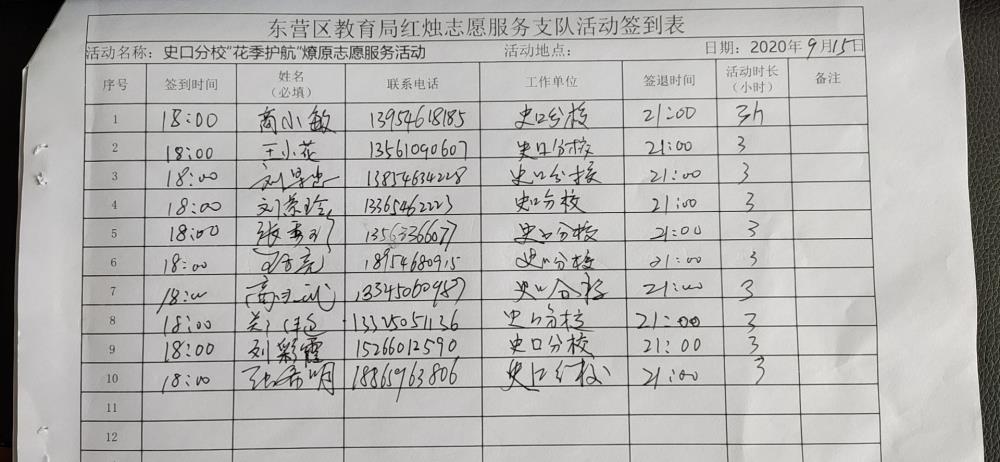 东营区教育局红烛志愿服务支队活动签到表
活动名称：史口分校"花季护航"燎原志愿服务活动 活动地点： 日期：2020年9月15日
序号 签到时间 姓名（必填） 联系电话 工作单位 签退时间 活动时长（小时） 备注
1 18:00 商小敏 13954618185 史口分校 21:00 3h
2 18:00 王小花 13561090607 史口分校 21:00 3
3 18:00 13854634228 史口分校 21:00 3
4 18:00 刘荣玲 13365462223 史口分校 21:00 3
5 18:00 13563366077 史口分校 21:00 3
6 18:00 18954680915 史口分校 21:00 3
7 18:00 13345060987 史口分校 21:00 3
8 18:00 13325051136 史口分校 21:00 3
9 18:00 刘彩霞 15266012590 史口分校 21:00 3
10 18:00 张希明 18865963806 史口分校 21:00 3
11
12